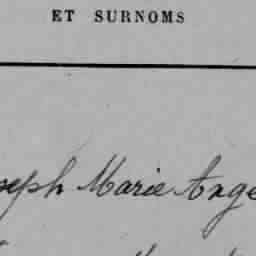 ET SURNOMS
seph Marie Ange